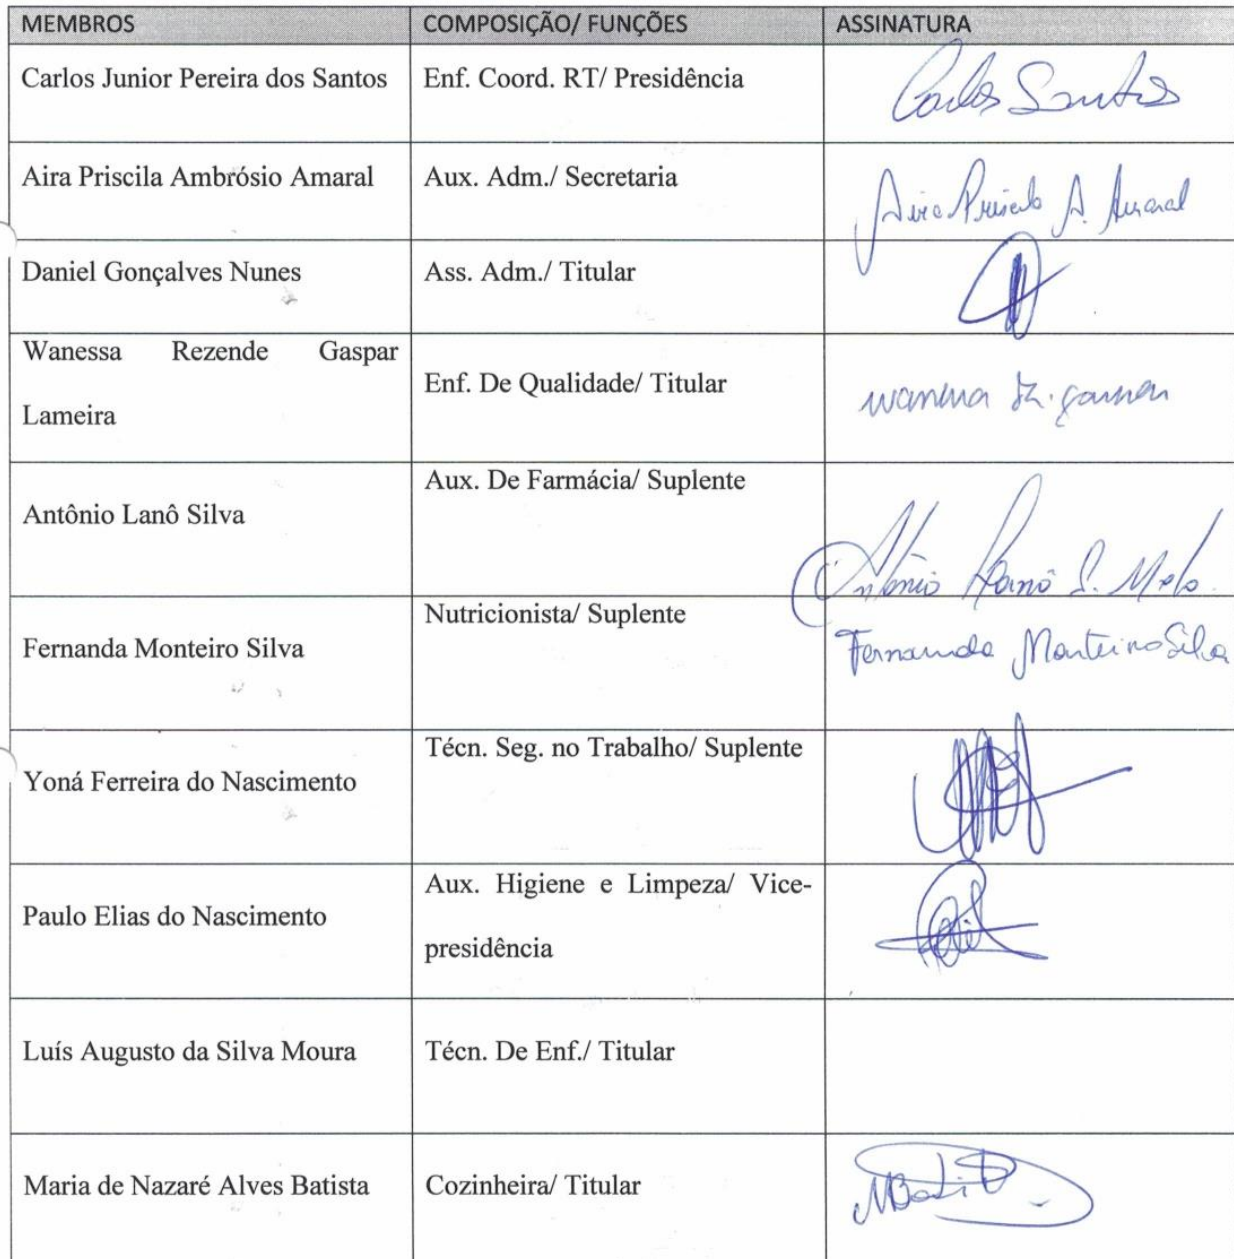 MEMBROS COMPOSIÇÃO/ FUNÇÕES ASSINATURA
Carlos Junior Pereira dos Santos Enf. Coord. RT/ Presidência Carlos Santos
Aira Priscila Ambrósio Amaral Aux. Adm./ Secretaria Aira Priscila A. Amaral
Daniel Gonçalves Nunes Ass. Adm./ Titular
Wanessa Rezende Gaspar
Lameira
Enf. De Qualidade/ Titular
Antônio Lanô Silva Aux. De Farmácia/ Suplente Antônio Lanô S. Melo.
Fernanda Monteiro Silva Nutricionista/ Suplente Fernanda Monteiro Silva
Yoná Ferreira do Nascimento Técn. Seg. no Trabalho/ Suplente
Paulo Elias do Nascimento Aux. Higiene e Limpeza/ Vice-
presidência
Luís Augusto da Silva Moura Técn. De Enf./ Titular
Maria de Nazaré Alves Batista Cozinheira/ Titular